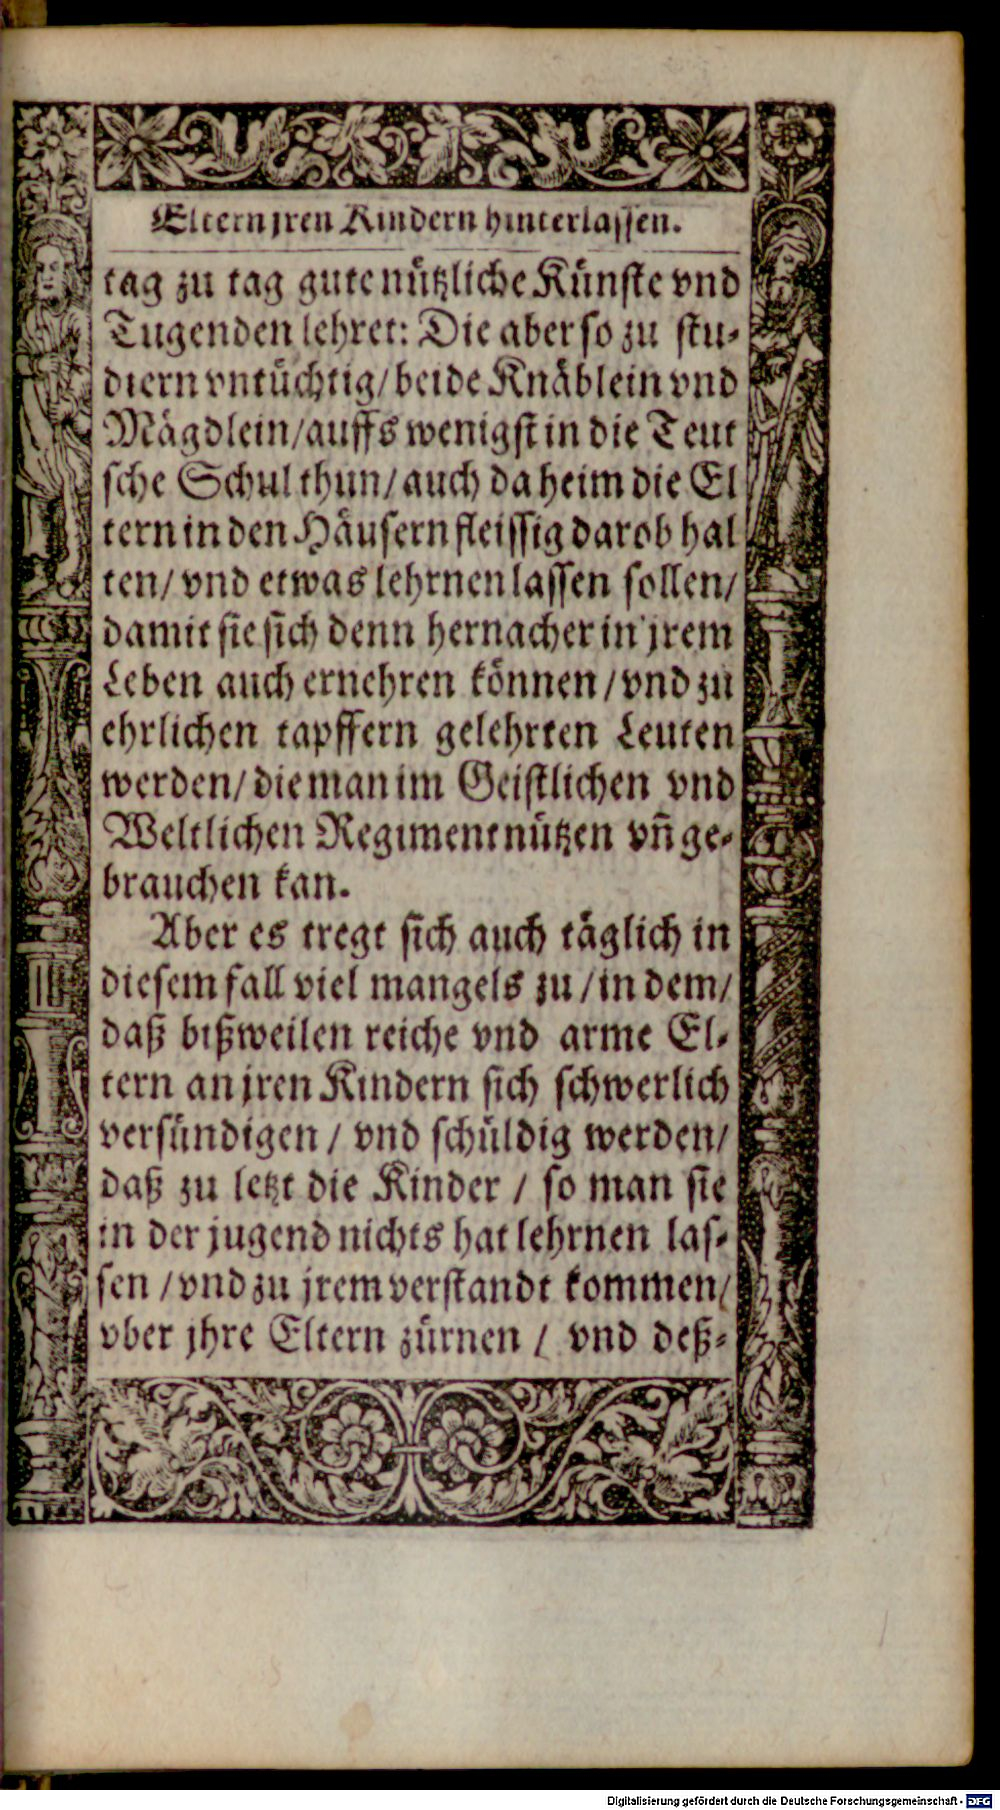 Eltern jren Kindern hinterlassen.
tag zu tag gute nützliche Künste vnd
Tugenden lehret: Die aber so zu stu-
diern vntüchtig/ beide Knäblein vnd
Mägdlein/ auffs wenigst in die Teut
sche Schul thun/ auch da heim die El
tern in den Häusern fleissig darob hal
ten/ vnd etwas lehrnen lassen sollen/
damit sie sich denn hernacher in jrem
Leben auch ernehren können/ vnd zu
ehrlichen tapffern gelehrten Leuten
werden/ die man im Geistlichen vnd
Weltlichen Regiment nützen vn̄ ge-
brauchen kan.
Aber es tregt sich auch täglich in
diesem fall viel mangels zu/ in dem/
daß bißweilen reiche vnd arme El-
tern an jren Kindern sich schwerlich
versündigen/ vnd schüldig werden/
daß zu letzt die Kinder/ so man sie
in der jugend nichts hat lehrnen las-
sen/ vnd zu jrem verstandt kommen/
vber jhre Eltern zürnen/ vnd deß-
Digitalisierung gefördert durch die Deutsche Forschungsgemeinschaft - DFG